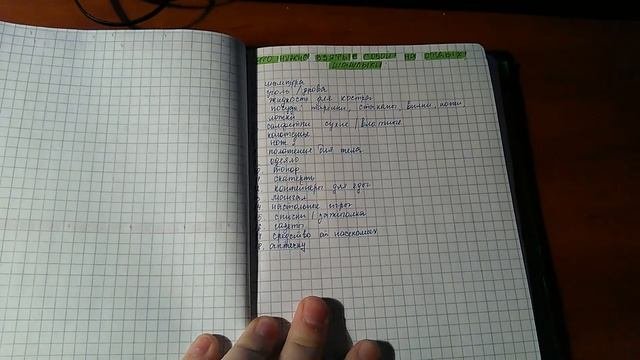 что нужно взять с собой на отдых
шашлыки
шампура
уголь / дрова
жидкость для костра
посуда: тарелки, стаканы, вилки, ножи
ложки
салфетки сухие / влажные
полотенце
нож 2
полотенце для тела
одеяло
топор
скатерть
контейнеры для еды
3. мангал
4. настольные игры
5. спички / зажигалка
6. газеты
7. средство от насекомых
8. аптечку